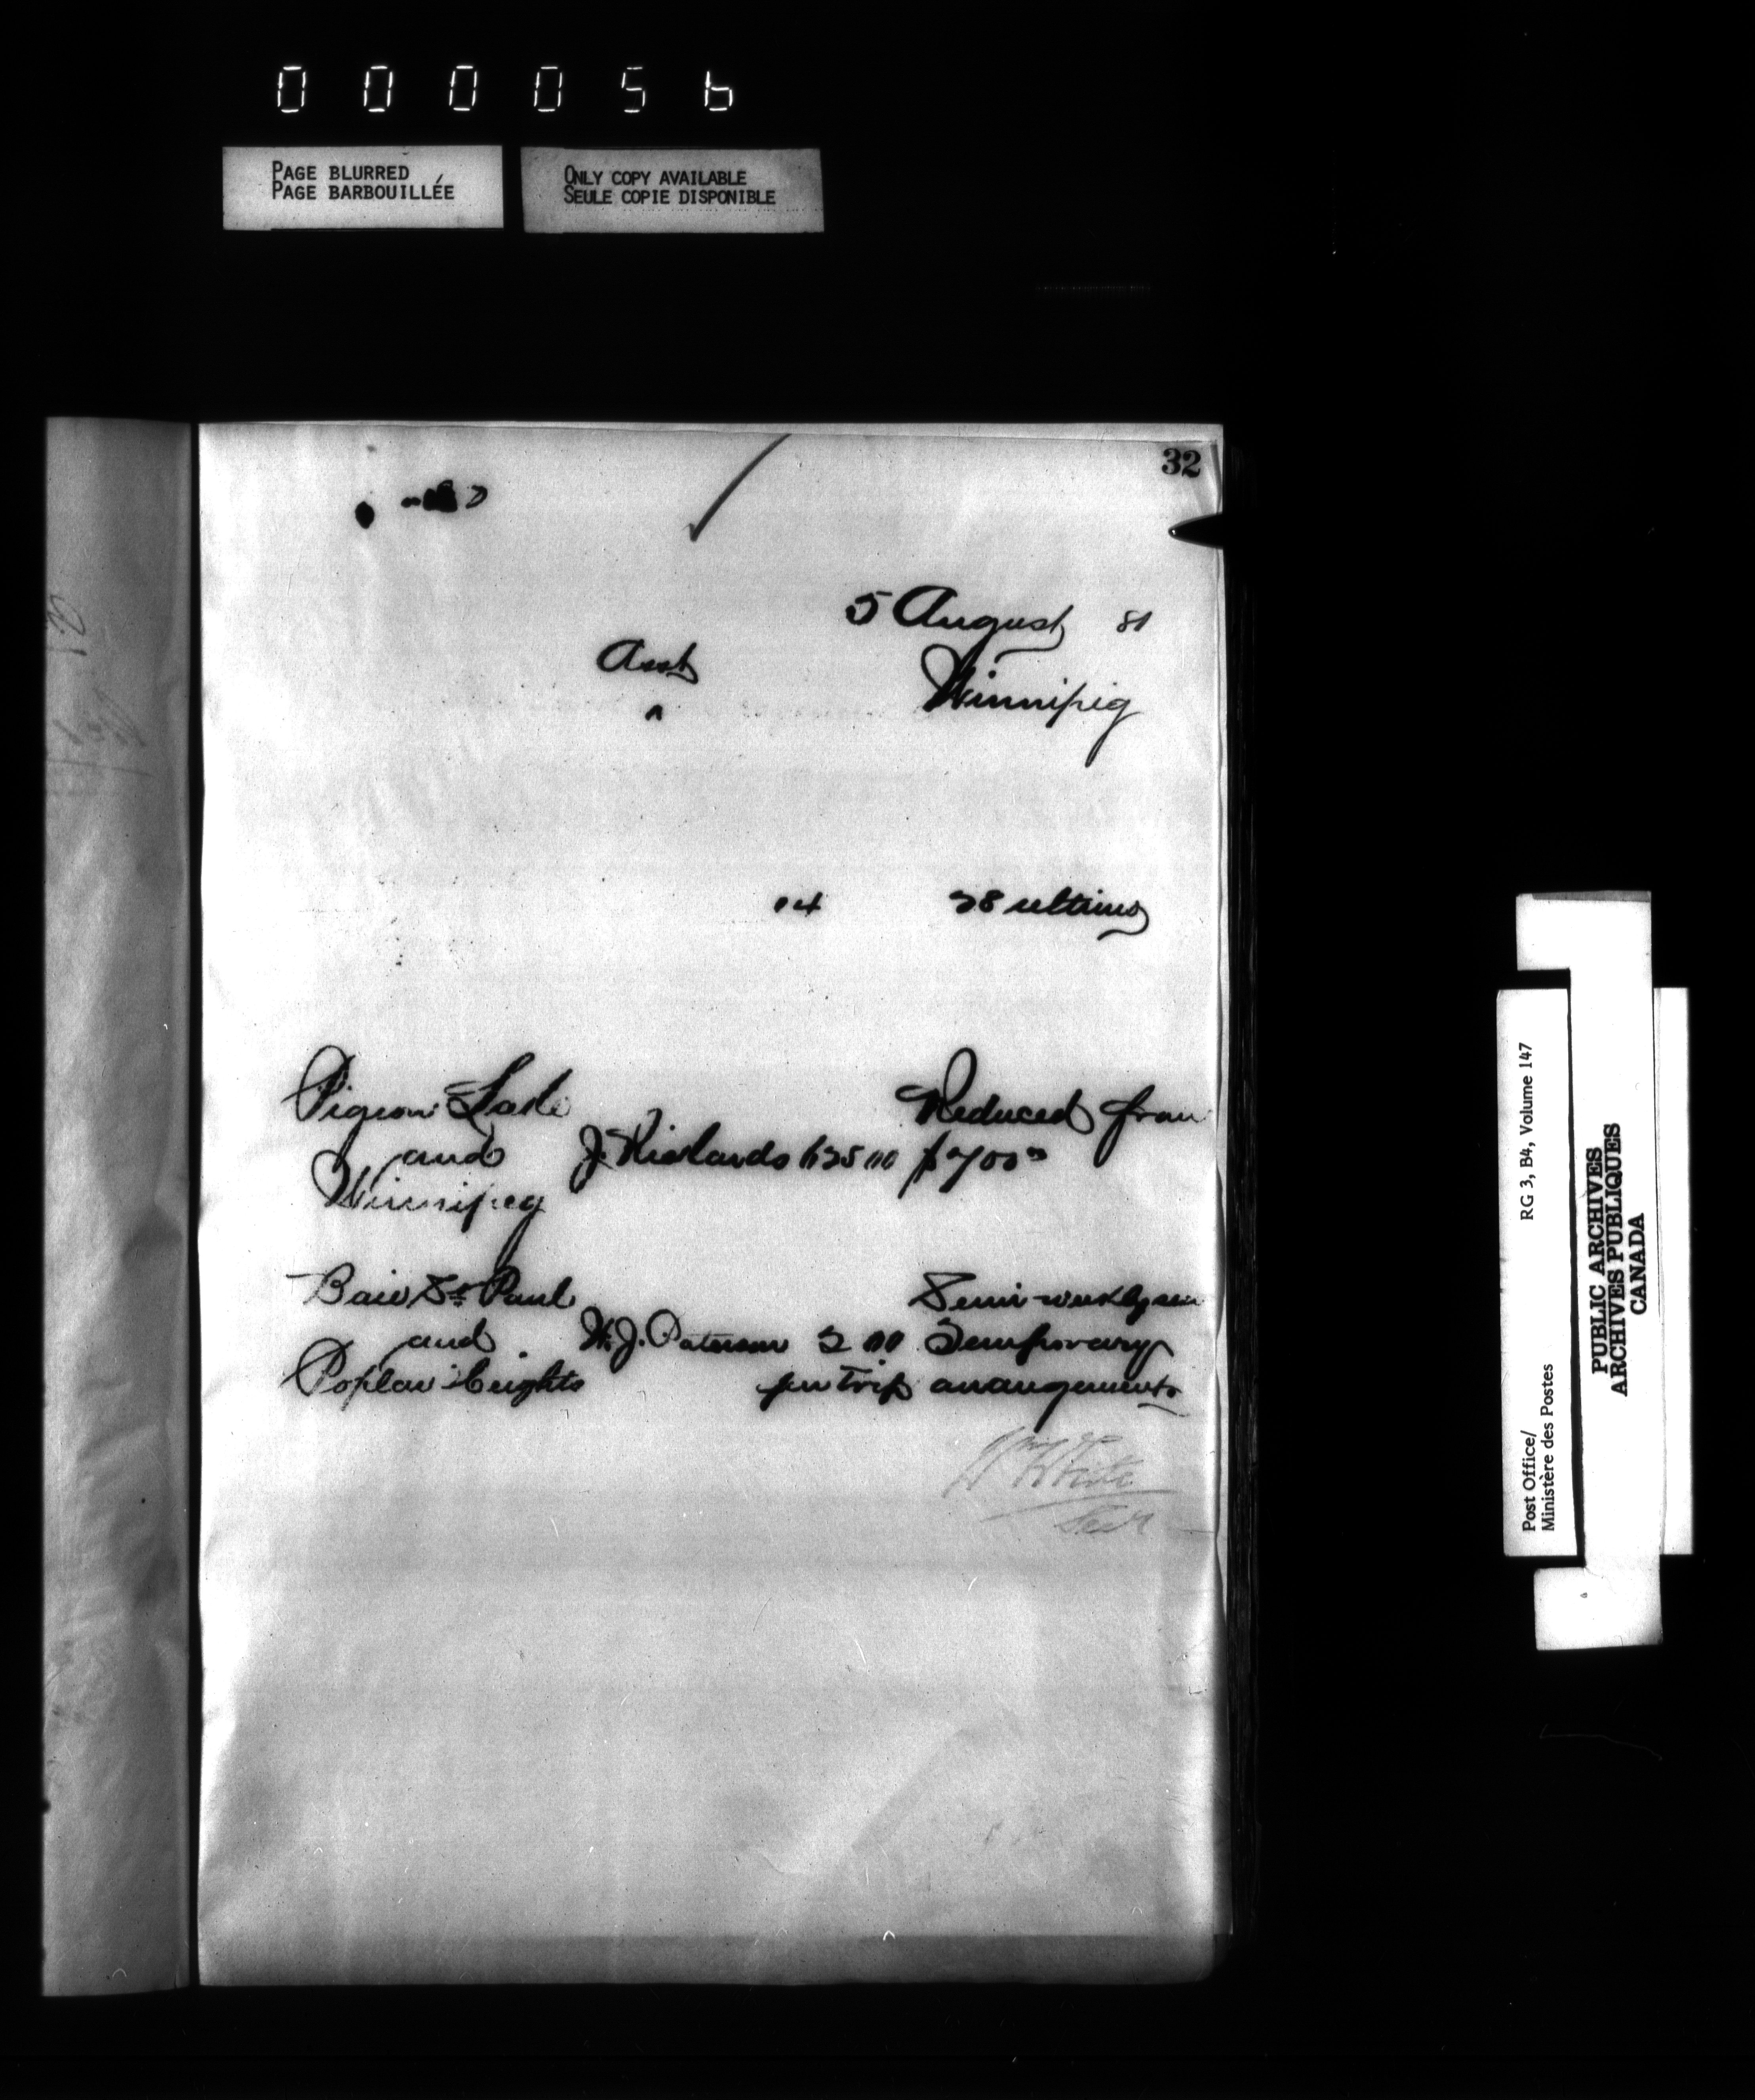 000056
PAGE BLURRED
PAGE BARBOUILLÉE
ONLY COPY AVAILABLE
SEULE COPIE DISPONIBLE
32
5 August 81
Asst
Winnipig
28 ultimo
Pigeon Lake
and
Winnipeg
J. Richards 625 00
Reduced from
$700 00
Baie St Paul
and
Poplar Heights
W. J. Paterson 2 00
per Trip
Semi-weekly
Temporary
arrangements
Wm
White
Secy
Post Office/
Ministère des Postes
RG 3, B4, Volume 147
PUBLIC ARCHIVES
ARCHIVES PUBLIQUES
CANADA